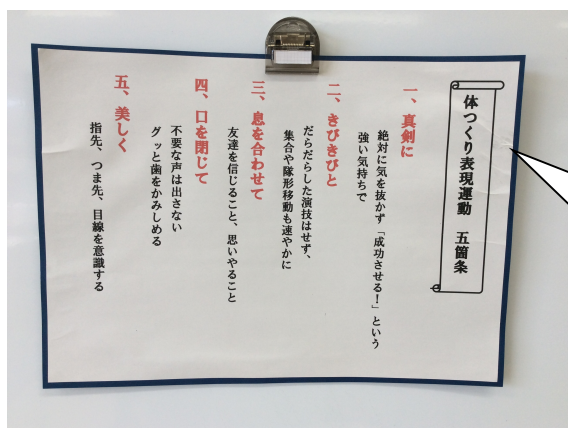 体つくり表現運動 五箇条
一、真剣に
絶対に気を抜かず「成功させる!」という
強い気持ちで
二、きびきびと
だらだらした演技はせず、
集合や隊形移動も速やかに
三、息を合わせて
友達を信じること、思いやること
四、口を閉じて
不要な声は出さない
グッと歯をかみしめる
五、美しく
指先、つま先、目線を意識する